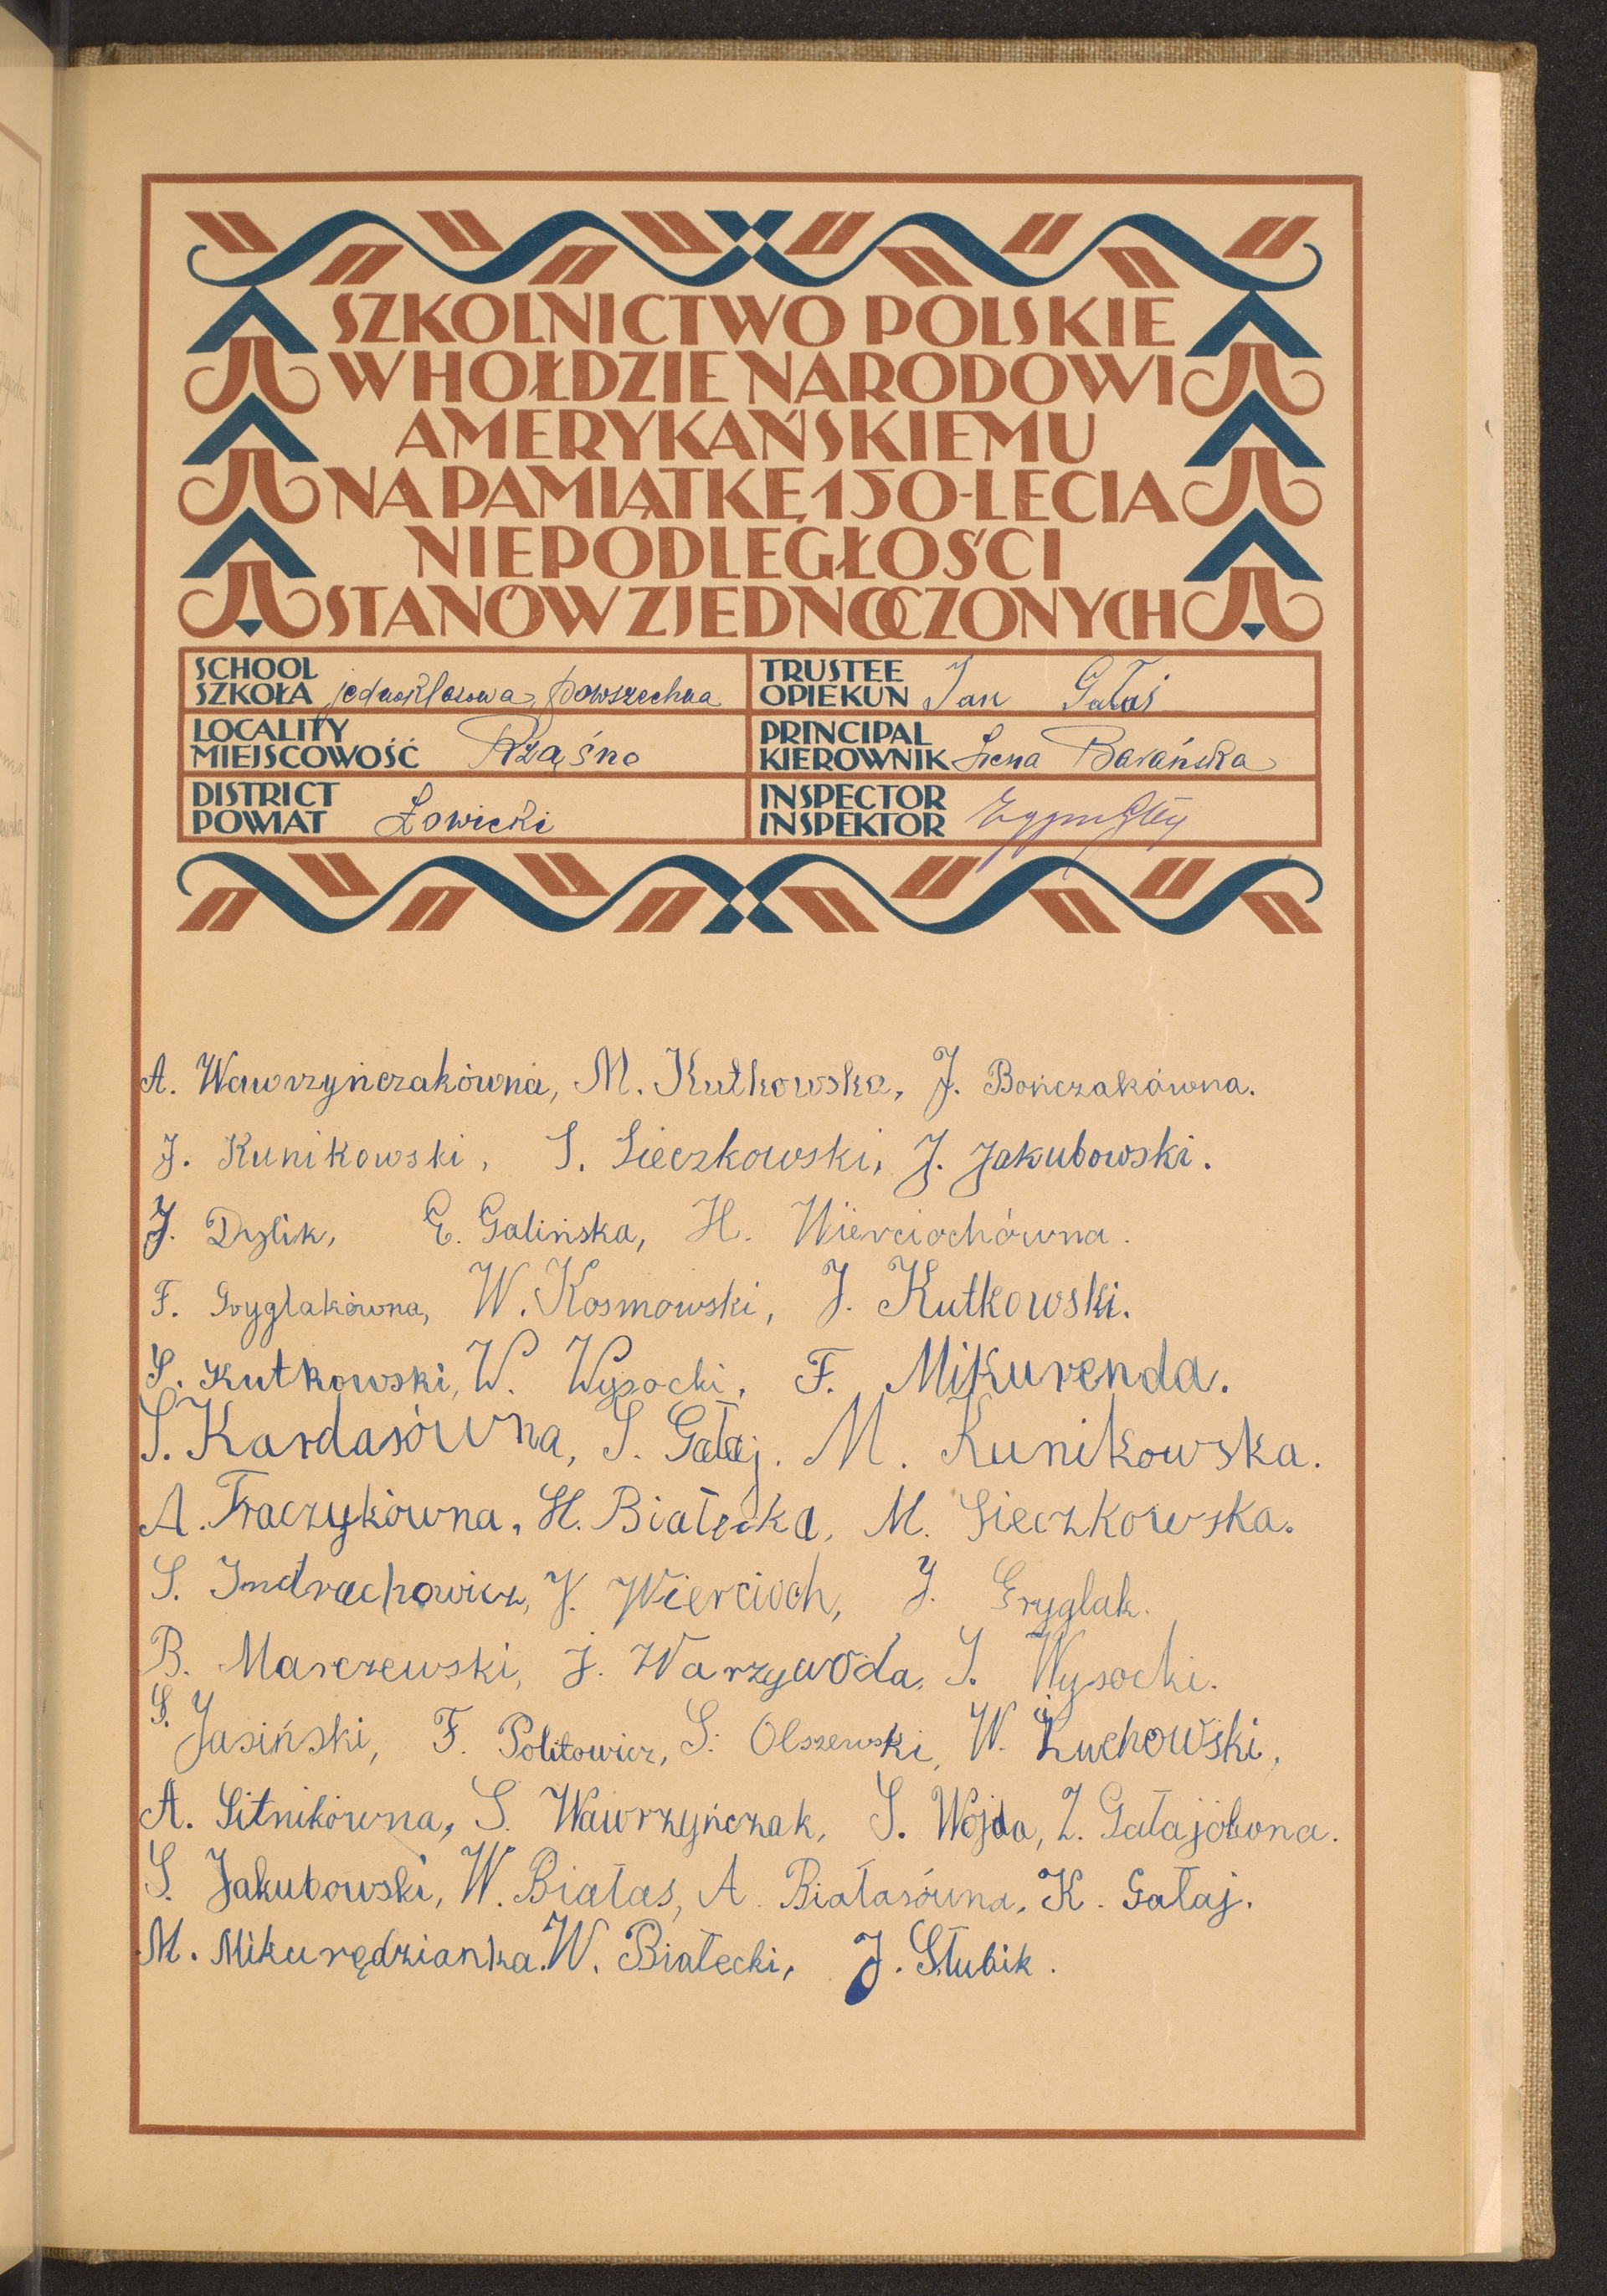 SZKOLNICTWO POLSKIE
W HOŁDZIE NARODOWI
AMERYKAŃSKIEMU
NA PAMIĄTKĘ 150-LECIA
NIEPODLEGŁOŚCI
STANÓW ZJEDNOCZONYCH
SCHOOL
SZKOŁA jednoklasowa powszechna
TRUSTEE
OPIEKUN Jan Gałaj
LOCALITY
MIEJSCOWOŚĆ Rząśno
PRINCIPAL
KIEROWNIK Irena Barańska
DISTRICT
POWIAT Łowicki
INSPECTOR
INSPEKTOR
A. Wawrzyńczakówna, M. Kutkowska, J. Bończakówna.
J. Kunikowski, S. Sieczkowski, J. Jakubowski.
J. Dylik, E. Galińska, H. Wierciochówna.
F. Gryglakówna, W. Kosmowski, J. Kutkowski.
S. Kutkowski, W. Wysocki, F. Mikurenda.
S. Kardasówna, S. Gałaj. M. Kunikowska.
A. Fraczykówna, H. Białecka, M. Sieczkowska.
S. Indrachowicz, J. Wiercioch, J. Gryglak.
B. Marczewski, J. Warzywoda, S. Wysocki.
S. Jasiński, F. Politowicz, S. Olszewski, W. Żuchowski,
A. Sitnikówna, S. Wawrzyńczak, S. Wojda, Z. Gałajówna.
S. Jakubowski, W. Białas, A. Białasówna, K. Gałaj.
M. Mikurędzianka. W. Białecki, J. Słubik.